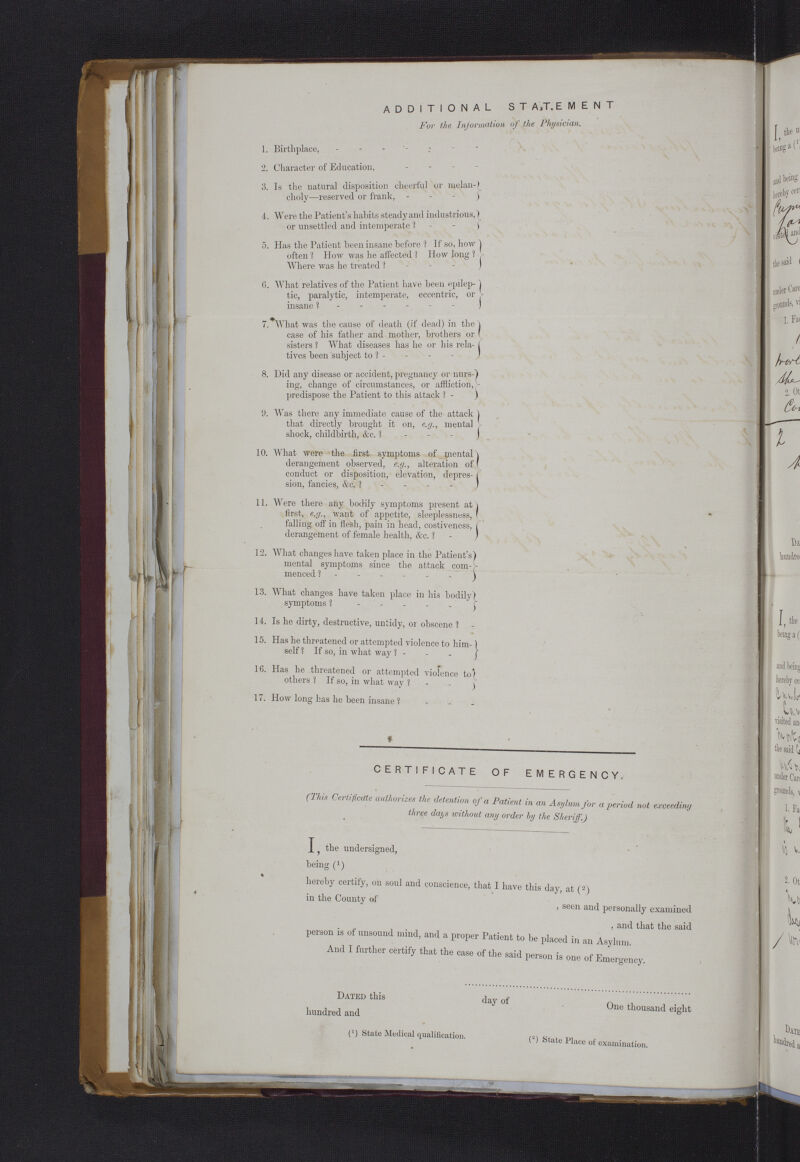 ADDITIONAL STATEMENT
For the Information of the Physician.
1. Birthplace, - - - - - - -
2. Character of Education, - - - -
3. Is the natural disposition cheerful or melan-
choly—reserved or frank, - - -
4. Were the Patient's habits steady and industrious,
or unsettled and intemperate? - -
5. Has the Patient been insane before? If so, how
often? How was he affected? How long?
Where was he treated? - - -
6. What relatives of the Patient have been epilep-
tic, paralytic, intemperate, eccentric, or
insane? - - - - - -
7. What was the cause of death (if dead) in the
case of his father and mother, brothers or
sisters? What diseases has he or his rela-
tives been subject to? - - - -
8. Did any disease or accident, pregnancy or nurs-
ing, change of circumstances, or affliction,
predispose the Patient to this attack? -
9. Was there any immediate cause of the attack
that directly brought it on, e.g., mental
shock, childbirth, &c.? - - -
10. What were the first symptoms of mental
derangement observed, e.g., alteration of
conduct or disposition, elevation, depres-
sion, fancies, &c.? - - - -
11. Were there any bodily symptoms present at
first, e.g., want of appetite, sleeplessness,
falling off in flesh, pain in head, costiveness,
derangement of female health, &c.? -
12. What changes have taken place in the Patient's
mental symptoms since the attack com-
menced? - - - - - -
13. What changes have taken place in his bodily
symptoms? - - - - -
14. Is he dirty, destructive, untidy, or obscene? -
15. Has he threatened or attempted violence to him-
self? If so, in what way? - - -
16. Has he threatened or attempted violence to
others? If so, in what way? - -
17. How long has he been insane? - - -
CERTIFICATE OF EMERGENCY.
(This Certificate authorizes the detention of a Patient in an Asylum for a period not exceeding
three days without any order by the Sheriff.)
I, the undersigned,
being (1)
hereby certify, on soul and conscience, that I have this day, at (2)
in the County of , seen and personally examined
, and that the said
person is of unsound mind, and a proper Patient to be placed in an Asylum.
And I further certify that the case of the said person is one of Emergency.
DATED this day of One thousand eight
hundred and
(1) State Medical qualification. (2) State Place of examination.